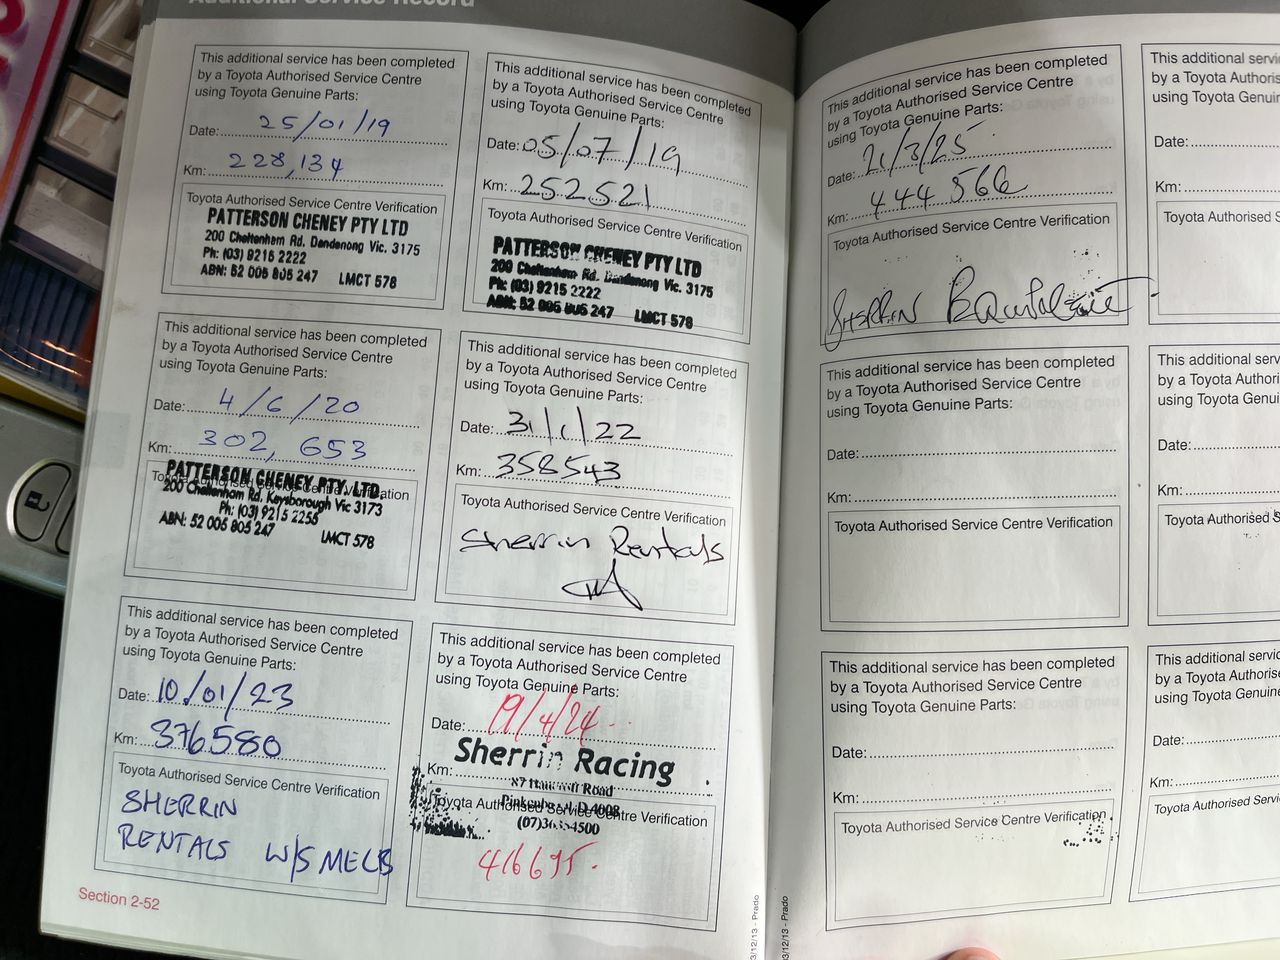 Additional Service Record
This additional service has been completed
by a Toyota Authorised Service Centre
using Toyota Genuine Parts:
Date: 25/01/19
Km: 228,134
Toyota Authorised Service Centre Verification
PATTERSON CHENEY PTY LTD
200 Cheltenham Rd. Dandenong Vic. 3175
Ph: (03) 9215 2222
ABN: 52 005 805 247 LMCT 578
This additional service has been completed
by a Toyota Authorised Service Centre
using Toyota Genuine Parts:
Date: 05/07/19
Km: 252521
Toyota Authorised Service Centre Verification
PATTERSON CHENEY PTY LTD
200 Cheltenham Rd. Dandenong Vic. 3175
Ph: (03) 9215 2222
ABN: 52 005 805 247 LMCT 578
This additional service has been completed
by a Toyota Authorised Service Centre
using Toyota Genuine Parts:
Date: 4/6/20
Km: 302,653
Toyota Authorised Service Centre Verification
PATTERSON CHENEY PTY. LTD.
200 Cheltenham Rd, Keysborough Vic 3173
Ph: (03) 9215 2255
ABN: 52 005 805 247 LMCT 578
This additional service has been completed
by a Toyota Authorised Service Centre
using Toyota Genuine Parts:
Date: 31/1/22
Km: 358543
Toyota Authorised Service Centre Verification
Sherrin Rentals
This additional service has been completed
by a Toyota Authorised Service Centre
using Toyota Genuine Parts:
Date: 10/01/23
Km: 376580
Toyota Authorised Service Centre Verification
SHERRIN
RENTALS W/S MELB
This additional service has been completed
by a Toyota Authorised Service Centre
using Toyota Genuine Parts:
Date: 19/4/24
Sherrin Racing
Km:
Road
Toyota Authorised Service Centre Verification
416695.
Section 2-52
3/12/13 - Prado
This additional service has been completed
by a Toyota Authorised Service Centre
using Toyota Genuine Parts:
Date: 21/3/25
Km: 444566
Toyota Authorised Service Centre Verification
SHERRIN
This additional servi
by a Toyota Authoris
using Toyota Genuin
Date:
Km:
Toyota Authorised S
This additional service has been completed
by a Toyota Authorised Service Centre
using Toyota Genuine Parts:
Date:
Km:
Toyota Authorised Service Centre Verification
This additional serv
by a Toyota Authori
using Toyota Genui
Date:
Km:
Toyota Authorised S
This additional service has been completed
by a Toyota Authorised Service Centre
using Toyota Genuine Parts:
Date:
Km:
Toyota Authorised Service Centre Verification
This additional servic
by a Toyota Authorise
using Toyota Genuine
Date:
Km:
Toyota Authorised Servi
03/12/13 - Prado